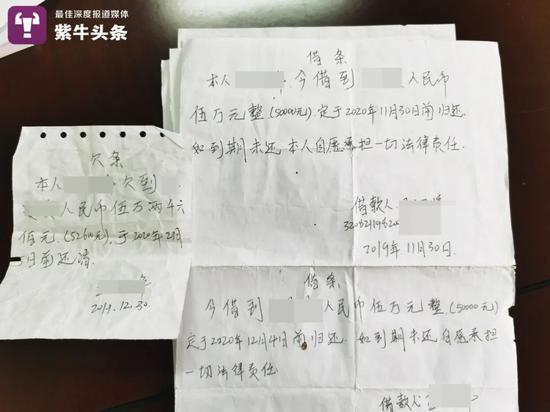 最佳深度报道媒体
紫牛头条
借条
本人 今借到 人民币
伍万元整(50000元)定于2020年11月30日前归还
如到期未还本人自愿承担一切法律责任.
借款人
2019年11月30日.
欠条
本人 欠到
人民币伍万两千六
佰元.(52600元),于2020年2月
日前还清.
2019.12.30.
借条
今借到 人民币伍万元整(50000元)
定于2020年12月4日前归还 如到期未还自愿承担
一切法律责任.
借款人